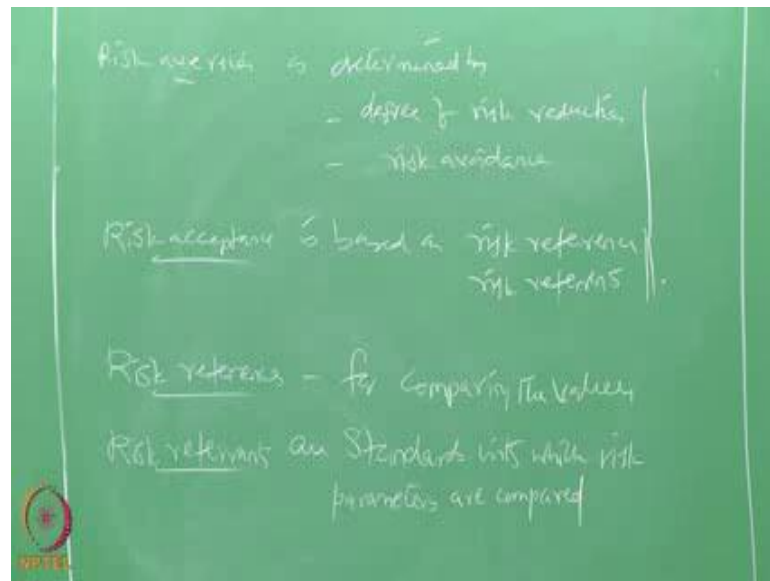 Risk aversion is determined by
- degree of risk reduction
- risk avoidance
Risk acceptance is based on risk reference
risk referents
Risk reference - for comparing the values
Risk referrants are Standards with which risk
parameters are compared
NPTEL